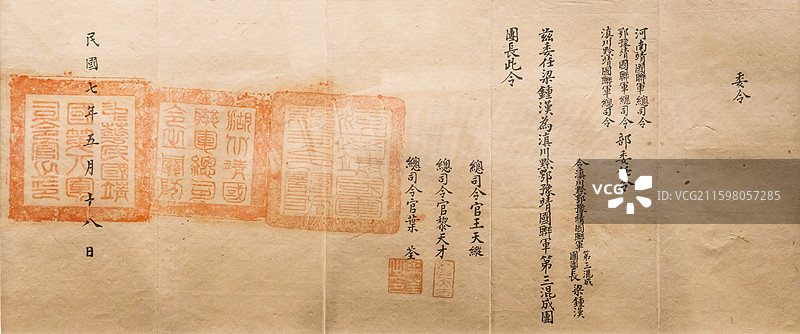 委令
河南靖國聯軍總司令
鄂豫靖國聯軍總司令
滇川黔靖國聯軍總司令
部委令
令滇川黔鄂豫靖國聯軍第三混成團團長梁鍾漢
茲委任梁鍾漢為滇川黔鄂豫靖國聯軍第三混成團
團長此令
總司令官王天縱
總司令官黎天才
總司令官葉荃
民國七年五月十八日
湖北靖國
聯軍總司
令之關防
VCG
VCG211598057285